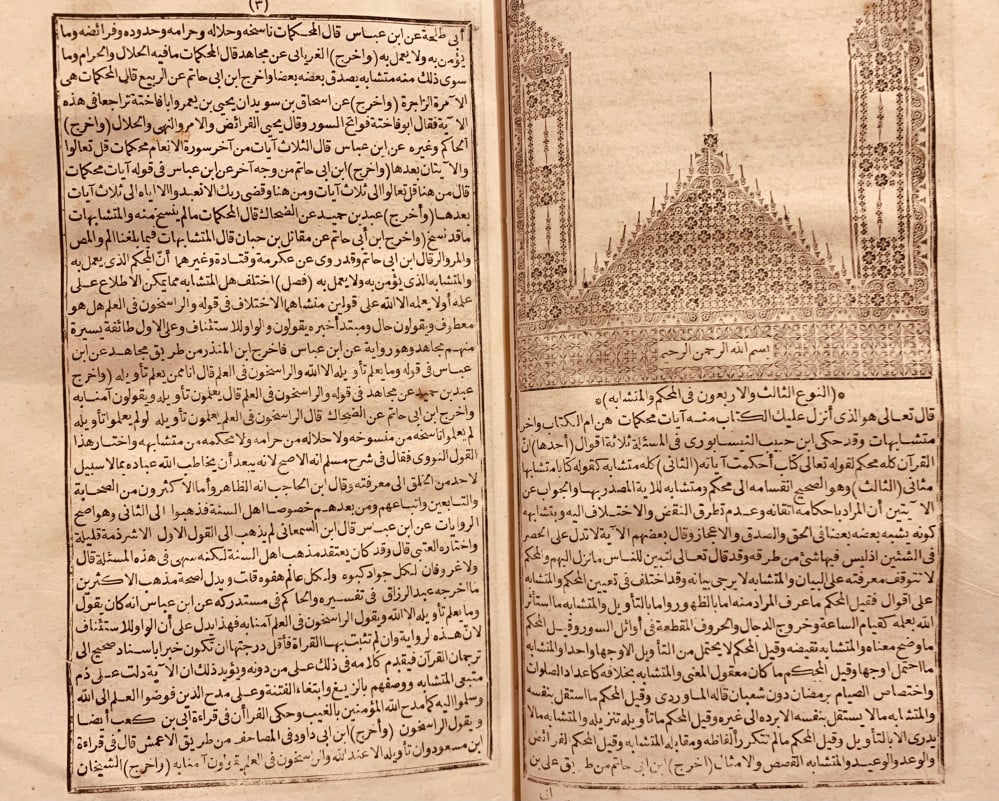 بسم الله الرحمن الرحيم
*(النوع الثالث والاربعون فى المحكم والمتشابه)*
قال تعالى هو الذى أنزل عليك الكتاب منه آيات محكمات هن ام الكتاب وأخر
متشابهات وقد حكى ابن حبيب النيسابورى فى المسئلة ثلاثة اقوال (أحدها) انّ
القرآن كله محكم لقوله تعالى كتاب أحكمت آياته (الثانى) كله متشابه لقوله كتابا متشابها
مثانى (الثالث) وهو الصحيح انقسامه الى محكم ومتشابه للاية المصدر بها والجواب عن
الآيتين أن المراد باحكامه اتقانه وعدم تطرق النقض والاختلاف اليه وبتشابهه
كونه يشبه بعضه بعضا فى الحق والصدق والاعجاز وقال بعضهم الآية لا تدل على الحصر
فى الشيئين اذ ليس فيها شئ من طرقه وقد قال تعالى لتبين للناس ما نزل اليهم والمحكم
لا تتوقف معرفته على البيان والمتشابه لا يرجى بيانه وقد اختلف فى تعيين المحكم والمتشابه
على اقوال فقيل المحكم ما عرف المراد منه اما بالظهور واما بالتأويل والمتشابه ما استأثر
الله بعلمه كقيام الساعة وخروج الدجال والحروف المقطعة فى أوائل السور وقيل المحكم
ما وضح معناه والمتشابه نقيضه وقيل المحكم لا يحتمل من التأويل الا وجها واحدا والمتشابه
ما احتمل اوجها وقيل المحكم ما كان معقول المعنى والمتشابه بخلافه كاعداد الصلوات
واختصاص الصيام برمضان دون شعبان قاله الماوردى وقيل المحكم ما استقل بنفسه
والمتشابه ما لا يستقل بنفسه الا برده الى غيره وقيل المحكم ما تأويله تنزيله والمتشابه ما لا
يدرى الا بالتأويل وقيل المحكم ما لم تتكرر ألفاظه ومقابله المتشابه وقيل المحكم الفرائض
والوعد والوعيد والمتشابه القصص والامثال (اخرج) ابن ابى حاتم من طريق على بن
(٣)
أبى طلحة عن ابن عباس قال المحكمات ناسخه وحلاله وحرامه وحدوده وفرائضه وما
يؤمن به ولا يعمل به (واخرج) الفريابى عن مجاهد قال المحكمات ما فيه الحلال والحرام وما
سوى ذلك منه متشابه يصدق بعضه بعضا واخرج ابن ابى حاتم عن الربيع قال المحكمات هى
الآمرة الزاجرة (واخرج) عن اسحاق بن سويد ان يحيى بن يعمر وابا فاختة تراجعا فى هذه
الآية فقال ابو فاختة فواتح السور وقال يحيى الفرائض والامر والنهى والحلال (واخرج)
الحاكم وغيره عن ابن عباس قال الثلاث آيات من آخر سورة الانعام محكمات قل تعالوا
والآيتان بعدها (واخرج) ابن ابى حاتم من وجه آخر عن ابن عباس فى قوله آيات محكمات
قال من هنا قل تعالوا الى ثلاث آيات ومن هنا وقضى ربك الا تعبدوا الا اياه الى ثلاث آيات
بعدها (وأخرج) عبد بن حميد عن الضحاك قال المحكمات ما لم ينسخ منه والمتشابهات
ما قد نسخ (واخرج) ابن أبى حاتم عن مقاتل بن حيان قال المتشابهات فيما بلغنا الم والمص
والمر والر قال ابن ابى حاتم وقد روى عن عكرمة وقتادة وغيرهما أنّ المحكم الذى يعمل به
والمتشابه الذى يؤمن به ولا يعمل به (فصل) اختلف هل المتشابه مما يمكن الاطلاع على
علمه أو لا يعلمه الا الله على قولين منشاهما الاختلاف فى قوله والراسخون فى العلم هل هو
معطوف ويقولون حال او مبتدأ خبره يقولون والواو للاستئناف وعلى الاول طائفة يسيرة
منهم مجاهد وهو رواية عن ابن عباس فاخرج ابن المنذر من طريق مجاهد عن ابن
عباس فى قوله وما يعلم تأويله الا الله والراسخون فى العلم قال انا ممن يعلم تأويله (واخرج)
عبد بن حميد عن مجاهد فى قوله والراسخون فى العلم قال يعلمون تأويله ويقولون آمنا به
واخرج ابن ابى حاتم عن الضحاك قال الراسخون فى العلم يعلمون تأويله لو لم يعلموا تأويله
لم يعلموا ناسخه من منسوخه ولا حلاله من حرامه ولا محكمه من متشابهه واختار هذا
القول النووى فقال فى شرح مسلم انه الاصح لانه يبعد أن يخاطب الله عباده بما لا سبيل
لاحد من الخلق الى معرفته وقال ابن الحاجب انه الظاهر وأما الاكثرون من الصحابة
والتابعين واتباعهم ومن بعدهم خصوصا اهل السنة فذهبوا الى الثانى وهو اصح
الروايات عن ابن عباس قال ابن السمعانى لم يذهب الى القول الاول الا شرذمة قليلة
واختاره العتبى قال وقد كان يعتقد مذهب اهل السنة لكنه سهى فى هذه المسئلة قال
ولا غرو فان لكل جواد كبوه ولكل عالم هفوه قات ويدل لصحة مذهب الاكثرين
ما اخرجه عبد الرزاق فى تفسيره والحاكم فى مستدركه عن ابن عباس انه كان يقول
وما يعلم تأويله الا الله ويقول الراسخون فى العلم آمنا به فهذا يدل على أن الواو للاستئناف
لانّ هذه الرواية وان لم تثبت بها القراة فأقل درجتها أن تكون خبرا باسناد صحيح الى
ترجمان القرآن فيقدم كلامه فى ذلك على من دونه ويؤيد ذلك ان الآية دلت على ذم
متبعى المتشابه ووصفهم بالزيغ وابتغاء الفتنة وعلى مدح الذين فوضوا العلم الى الله
وسلموا اليه كما مدح الله المؤمنين بالغيب وحكى الفراأن فى قراءة أبى بن كعب أيضا
ويقول الراسخون (وأخرج) ابن ابى داود فى المصاحف من طريق الاعمش قال فى قراءة
ابن مسعود وان تأويله الا عند الله والراسخون فى العلم يقولون آمنا به (واخرج) الشيخان